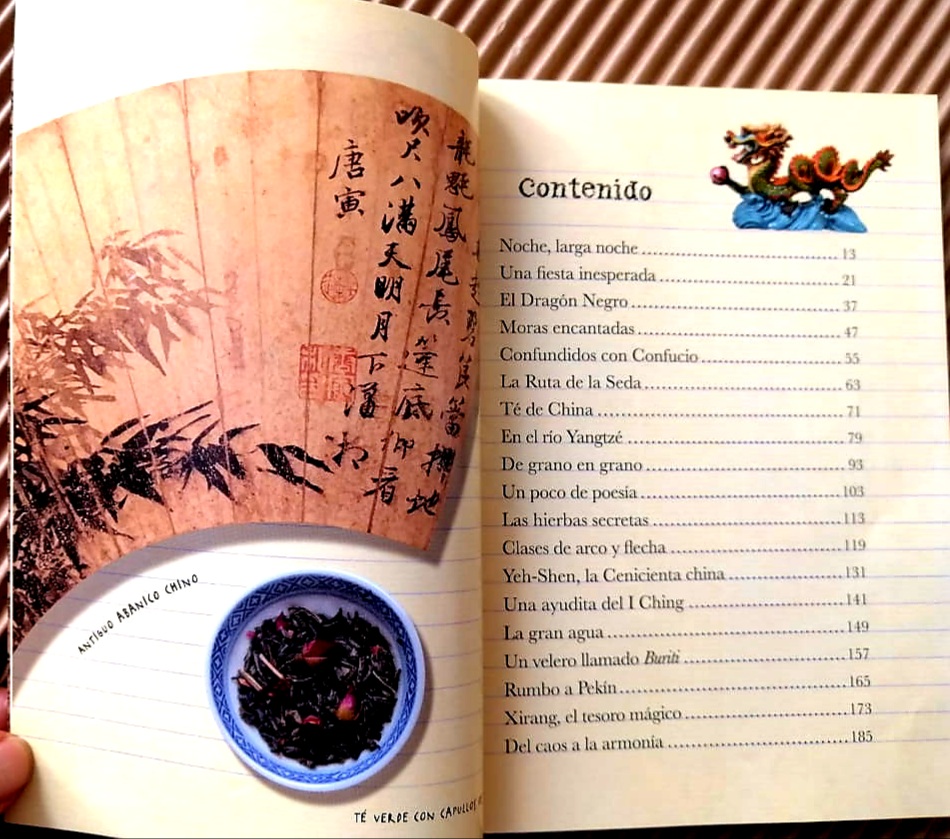 龍鳳尾長篷底仰看
吹尺八滿天明月下瀟湘
唐寅
ANTIGUO ABANICO CHINO
TÉ VERDE CON CAPULLOS
Contenido
Noche, larga noche 13
Una fiesta inesperada 21
El Dragón Negro 37
Moras encantadas 47
Confundidos con Confucio 55
La Ruta de la Seda 63
Té de China 71
En el río Yangtzé 79
De grano en grano 93
Un poco de poesía 103
Las hierbas secretas 113
Clases de arco y flecha 119
Yeh-Shen, la Cenicienta china 131
Una ayudita del I Ching 141
La gran agua 149
Un velero llamado Buriti 157
Rumbo a Pekín 165
Xirang, el tesoro mágico 173
Del caos a la armonía 185